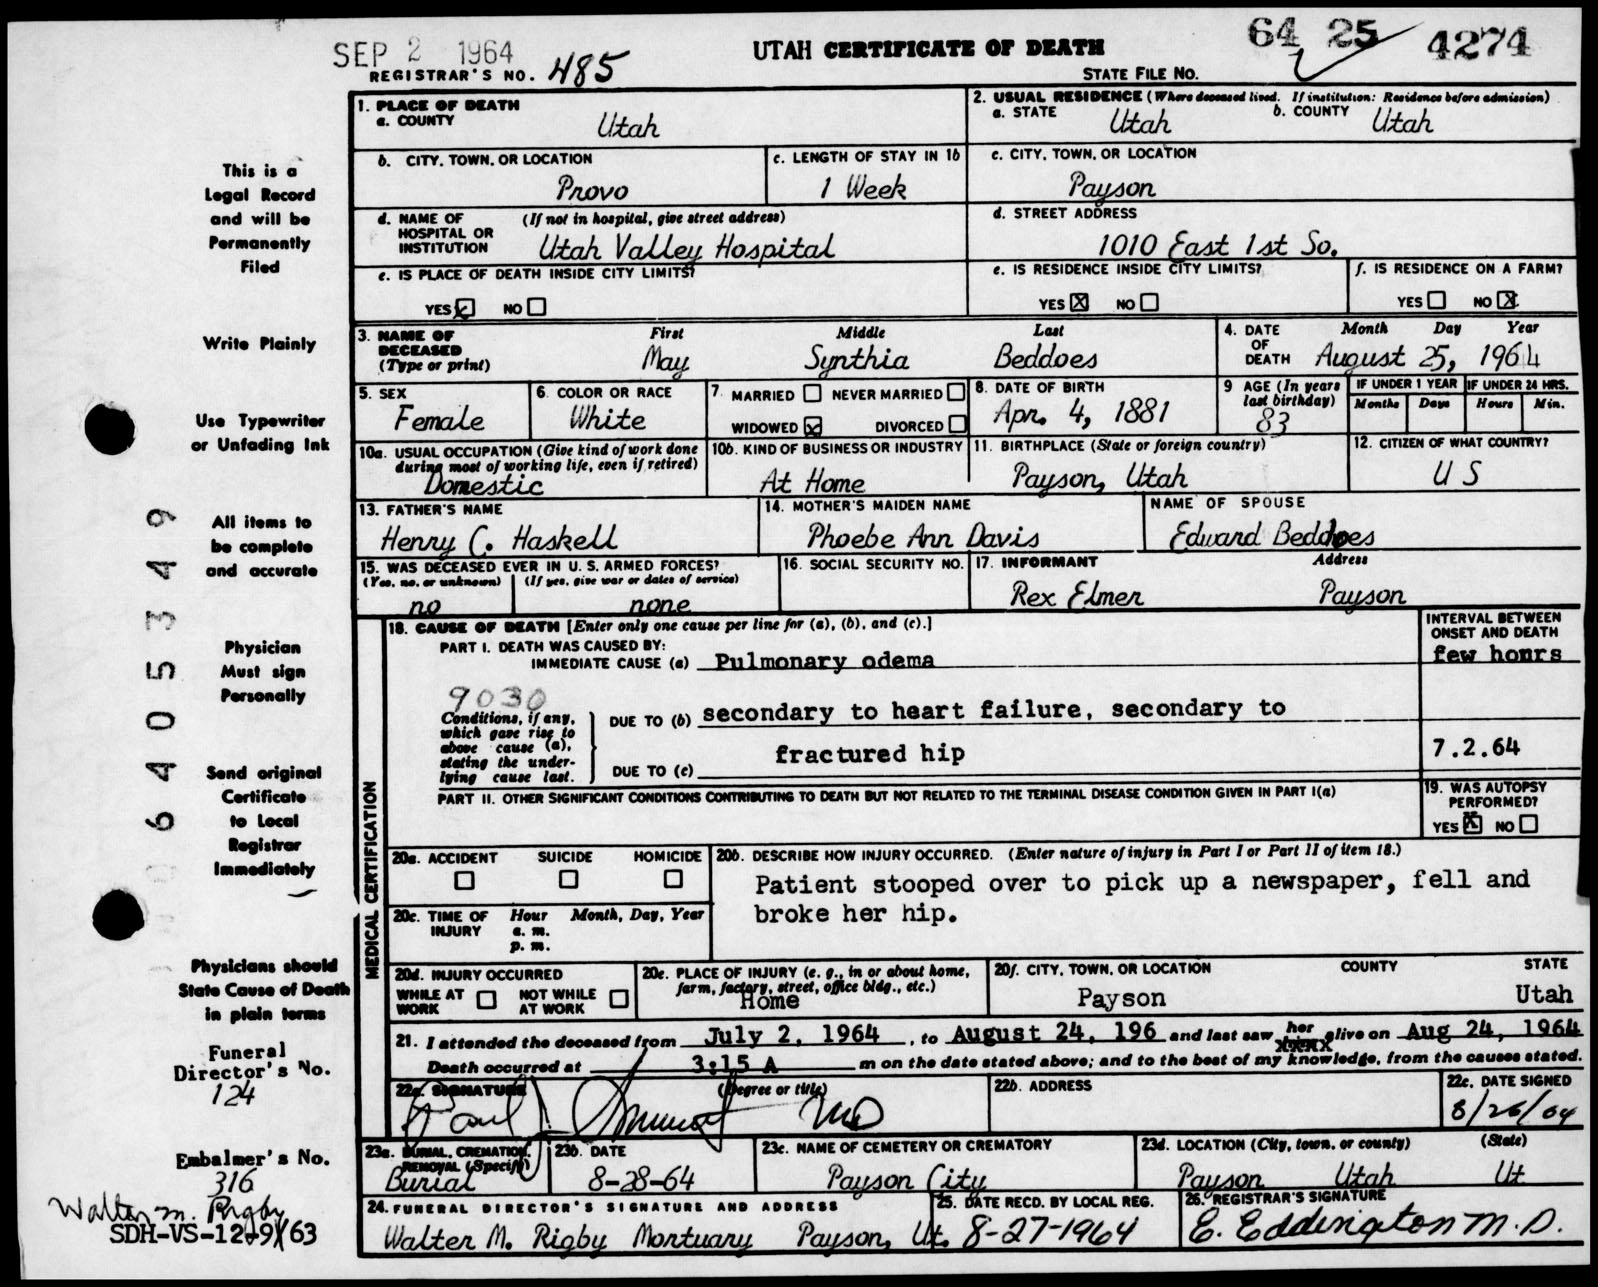 SEP 2 1964
UTAH CERTIFICATE OF DEATH
64 25 4274
REGISTRAR'S NO. 485
STATE FILE NO.
1. PLACE OF DEATH
a. COUNTY Utah
2. USUAL RESIDENCE (Where deceased lived. If institution: Residence before admission)
a. STATE Utah b. COUNTY Utah
b. CITY, TOWN, OR LOCATION Provo
c. LENGTH OF STAY IN 1b 1 Week
c. CITY, TOWN, OR LOCATION Payson
d. NAME OF HOSPITAL OR INSTITUTION (If not in hospital, give street address) Utah Valley Hospital
d. STREET ADDRESS 1010 East 1st So.
e. IS PLACE OF DEATH INSIDE CITY LIMITS?
YES NO
e. IS RESIDENCE INSIDE CITY LIMITS?
YES X NO
f. IS RESIDENCE ON A FARM?
YES NO X
3. NAME OF DECEASED (Type or print)
First Middle Last
May Synthia Beddoes
4. DATE OF DEATH Month Day Year
August 25, 1964
5. SEX Female
6. COLOR OR RACE White
7. MARRIED NEVER MARRIED
WIDOWED X DIVORCED
8. DATE OF BIRTH Apr. 4, 1881
9 AGE (In years last birthday) 83
IF UNDER 1 YEAR Months Days
IF UNDER 24 HRS. Hours Min.
10a. USUAL OCCUPATION (Give kind of work done during most of working life, even if retired) Domestic
10b. KIND OF BUSINESS OR INDUSTRY At Home
11. BIRTHPLACE (State or foreign country) Payson, Utah
12. CITIZEN OF WHAT COUNTRY? U S
13. FATHER'S NAME Henry C. Haskell
14. MOTHER'S MAIDEN NAME Phoebe Ann Davis
NAME OF SPOUSE Edward Beddoes
15. WAS DECEASED EVER IN U. S. ARMED FORCES?
(Yes, no, or unknown) no
(If yes, give war or dates of service) none
16. SOCIAL SECURITY NO.
17. INFORMANT Address
Rex Elmer Payson
MEDICAL CERTIFICATION
18. CAUSE OF DEATH [Enter only one cause per line for (a), (b), and (c).]
INTERVAL BETWEEN ONSET AND DEATH
PART I. DEATH WAS CAUSED BY:
IMMEDIATE CAUSE (a) Pulmonary odema
few hours
9030
Conditions, if any, which gave rise to above cause (a), stating the underlying cause last.
DUE TO (b) secondary to heart failure, secondary to
fractured hip
DUE TO (c)
7.2.64
PART II. OTHER SIGNIFICANT CONDITIONS CONTRIBUTING TO DEATH BUT NOT RELATED TO THE TERMINAL DISEASE CONDITION GIVEN IN PART I(a)
19. WAS AUTOPSY PERFORMED?
YES X NO
20a. ACCIDENT SUICIDE HOMICIDE
20b. DESCRIBE HOW INJURY OCCURRED. (Enter nature of injury in Part I or Part II of item 18.)
Patient stooped over to pick up a newspaper, fell and
broke her hip.
20c. TIME OF INJURY Hour Month, Day, Year
a. m.
p. m.
20d. INJURY OCCURRED
WHILE AT WORK NOT WHILE AT WORK
20e. PLACE OF INJURY (e. g., in or about home, farm, factory, street, office bldg., etc.) Home
20f. CITY, TOWN, OR LOCATION COUNTY STATE
Payson Utah
21. I attended the deceased from July 2, 1964, to August 24, 196 and last saw her alive on Aug 24, 1964
Death occurred at 3:15 A m on the date stated above; and to the best of my knowledge, from the causes stated.
22a. SIGNATURE (Degree or title)
Paul MD
22b. ADDRESS
22c. DATE SIGNED 8/26/64
23a. BURIAL, CREMATION, REMOVAL (Specify) Burial
23b. DATE 8-28-64
23c. NAME OF CEMETERY OR CREMATORY Payson City
23d. LOCATION (City, town, or county) (State)
Payson Utah Ut
24. FUNERAL DIRECTOR'S SIGNATURE AND ADDRESS
Walter M. Rigby Mortuary Payson, Ut.
25. DATE RECD. BY LOCAL REG. 8-27-1964
26. REGISTRAR'S SIGNATURE
E. Eddington M.D.
This is a
Legal Record
and will be
Permanently
Filed
Write Plainly
Use Typewriter
or Unfading Ink
All items to
be complete
and accurate
Physician
Must sign
Personally
Send original
Certificate
to Local
Registrar
Immediately
Physicians should
State Cause of Death
in plain terms
Funeral
Director's No.
124
Embalmer's No.
316
Walter M. Rigby
SDH-VS-12-9/63
6405349